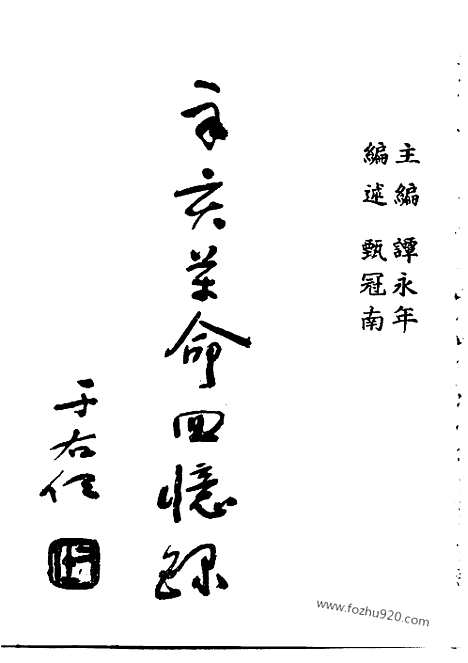 主編 譚永年
編述 甄冠南
辛亥革命回憶録
于右任
www.fozhu920.com